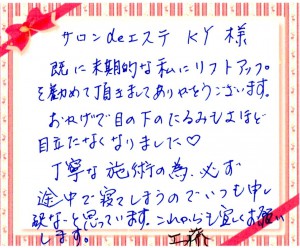 サロンdeエステ KY 様
既に末期的な私にリフトアップ
を勧めて頂きましてありがとうございます。
おかげで目の下のたるみもさほど
目立たなくなりました♡
丁寧な施術の為、必ず
途中で寝てしまうのでいつも申し
訳な〜と思っています。これからも宜しくお願い
します。 工藤